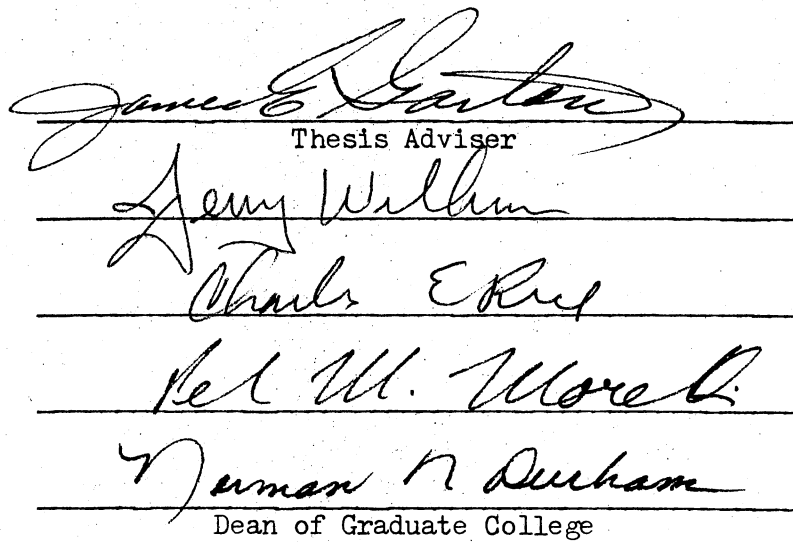 James E Garton
Thesis Adviser
Jerry Wilhm
Charles E Rice
M. Moretti
Norman N Durham
Dean of Graduate College